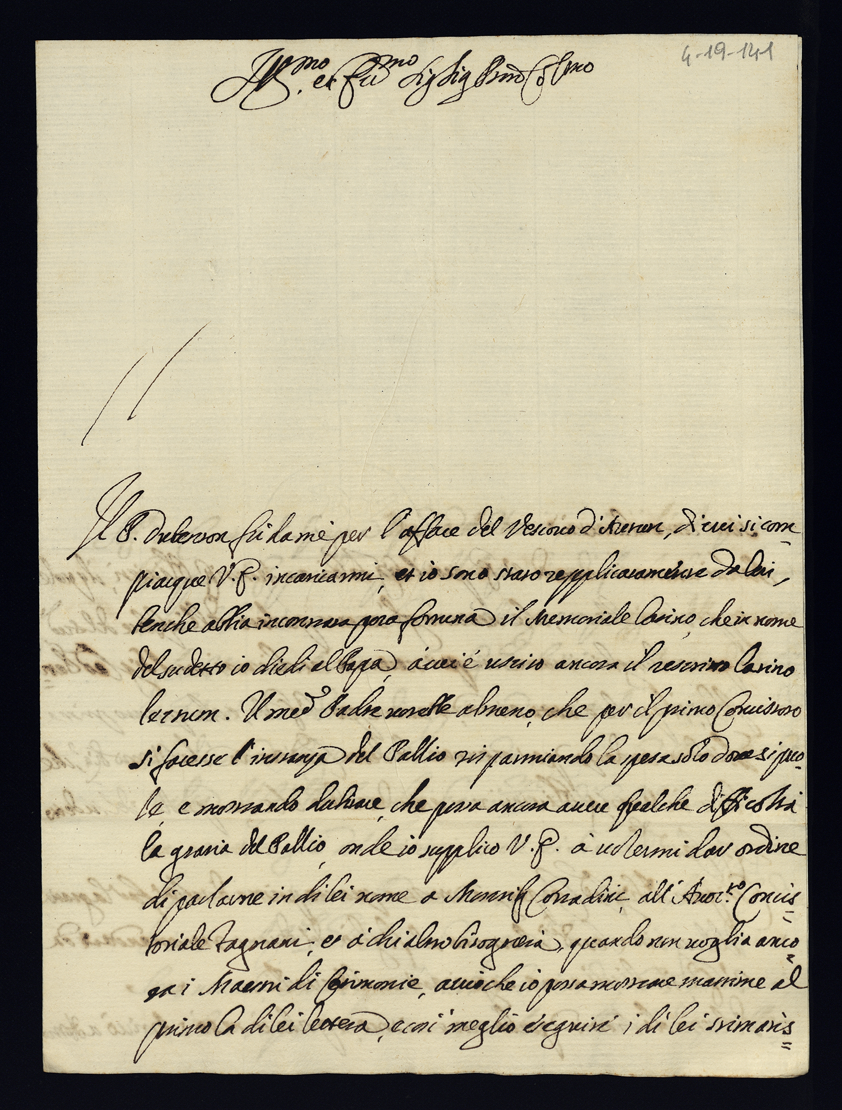 4-19-141
Ill.mo et Ecc.mo Sig. Sig. Pron Col.mo
Il P. Duberon fù da me per l'affare del Vescovo d'Autun, di cui si com=
piacque V. E. incaricarmi, et io sono stato replicatamente da lui,
benche abbia incontrata poca fortuna il Memoriale latino, che in nome
del sudetto io diedi al Papa, à cui è uscito ancora il rescritto latino
lectum. Il med.o Padre vorrebbe almeno, che per il primo Concistoro
si facesse l'instanza del Pallio risparmiando la spesa solo dove si puo=
le, e mostrando dubitare, che possa ancora avere qualche difficoltà
la grazia del Pallio, onde io supplico V. E. à volermi dar ordine
di parlarne in di lei nome a Monsig. Corradini, all'Avoc.to Concis=
toriale Zagnani, et à chi altro bisogneria, quando non voglia anco=
ra i Maestri di Cerimonie, accioche io possa mostrare massime al
primo la di lei lettera, e così meglio eseguire i di lei stimatis=